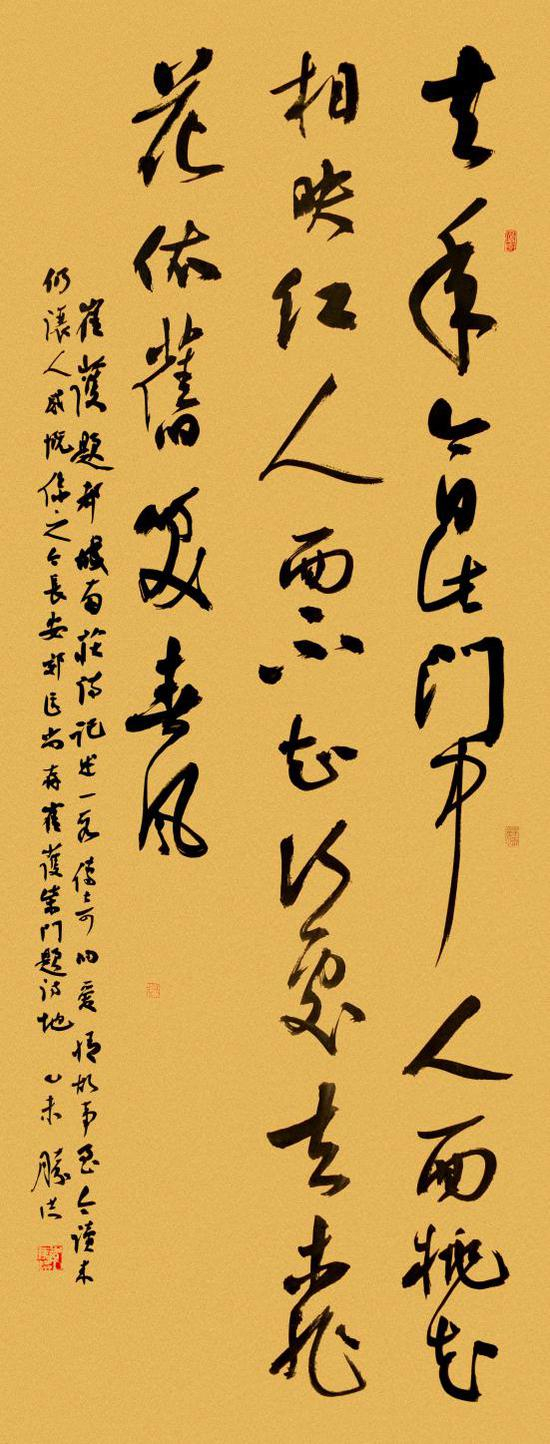 去年今日此门中人面桃花
相映红人面不知何處去桃
花依舊笑春风
崔護题都城南莊诗记述一段傳奇的爱情故事至今读来
仍讓人感慨係之今長安郊区尚存崔護柴门题诗地 乙未 勝洪